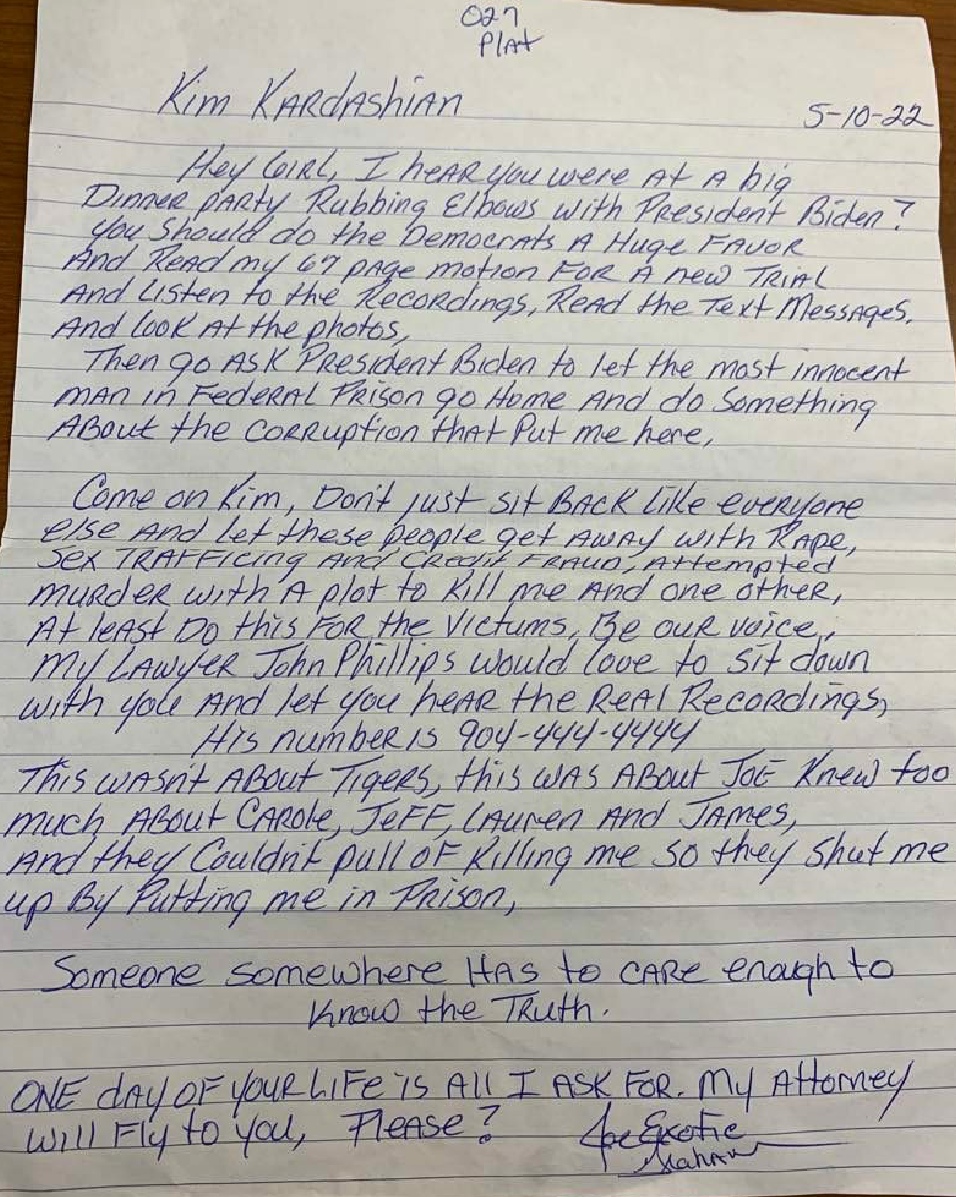 027
Plat
Kim Kardashian
5-10-22
Hey Girl, I hear you were at a big
Dinner party Rubbing Elbows with President Biden?
you should do the Democrats a Huge Favor
And Read my 67 page motion For a new Trial
And Listen to the Recordings, Read the Text Messages.
And look at the photos,
Then go ask President Biden to let the most innocent
man in Federal Prison go Home And do Something
About the corruption that Put me here,
Come on Kim, Don't just sit Back like everyone
else And let these people get away with Rape,
Sex Trafficing And Credit Fraud, Attempted
murder with a plot to Kill me and one other,
At least Do this For the Victums, Be our voice,
My Lawyer John Phillips would love to sit down
with you And let you hear the Real Recordings,
His number is 904-444-4444
This wasn't About Tigers, this was About Joe Knew too
much About Carole, Jeff, Lauren and James,
And they Couldn't pull of Killing me so they shut me
up By Putting me in Prison,
Someone somewhere Has to care enough to
Know the Truth.
One day of your Life is all I ask For. My Attorney
will Fly to you, Please? Joe Exotic